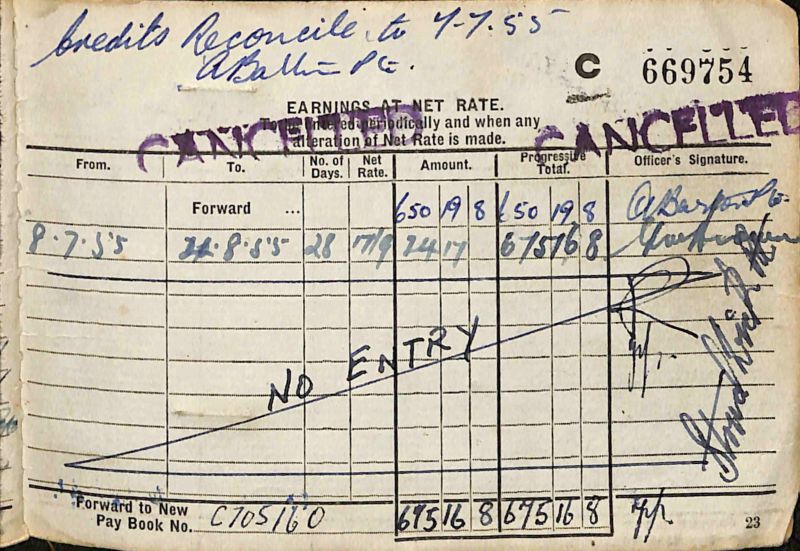 Credits Reconcile to 7-7-55
C 669754
EARNINGS AT NET RATE.
To be entered periodically and when any
alteration of Net Rate is made.
CANCELLED CANCELLED
From. To. No. of Days. Net Rate. Amount. Progressive Total. Officer's Signature.
Forward ... 650 19 8 650 19 8
8.7.55 8.55 28 17/9 24 17 675 16 8
NO ENTRY
Forward to New
Pay Book No. C705160 675 16 8 675 16 8
23